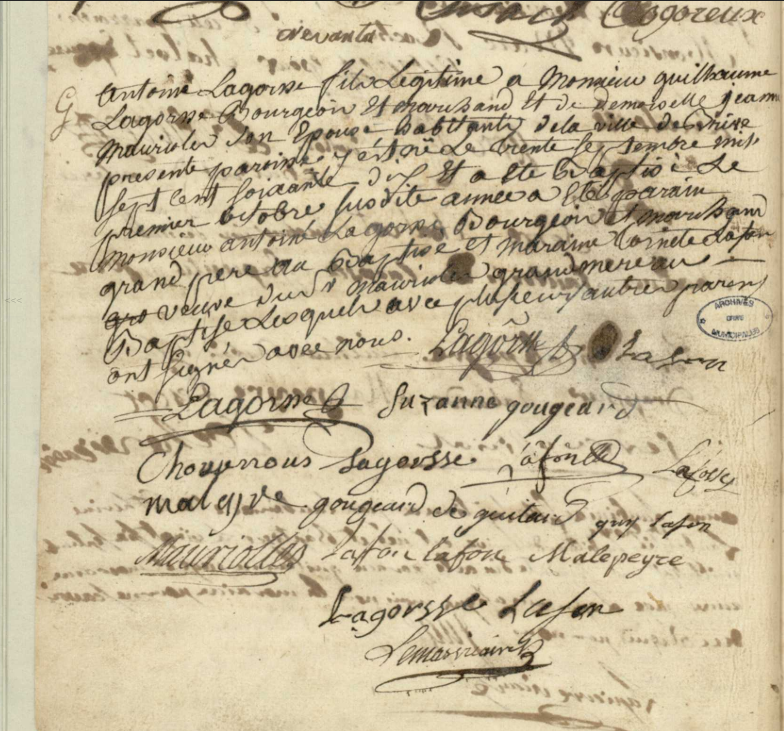 G
antoine Lagorsse fils Legitime a Monsieur guilhaume
Lagorsse Bourgeois Et marchand Et de demoiselle jeanne
Mauriolles son Epouse habitants de la ville de Brive
presente paroisse y est né Le trente septembre mil
sept cent soixante dix Et a ete Baptisé Le
premier octobre susdite année a Eté parain
monsieur antoine Lagorsse Bourgeois Et marchand
grand pere du Baptisé et maraine Lafon
veuve du Sr Mauriolles grand mere au
Baptisé Lesquels avec plusieurs autres parens
ont signés avec nous.
Lagorsse Lafon
Lagorsse Suzanne gougeard
Lagorsse Lafon
gougeard de guitard guy lafon
Mauriolles Lafon lafon Malepeyre
Lagorsse Lafon
ARCHIVES
MUNICIPALES